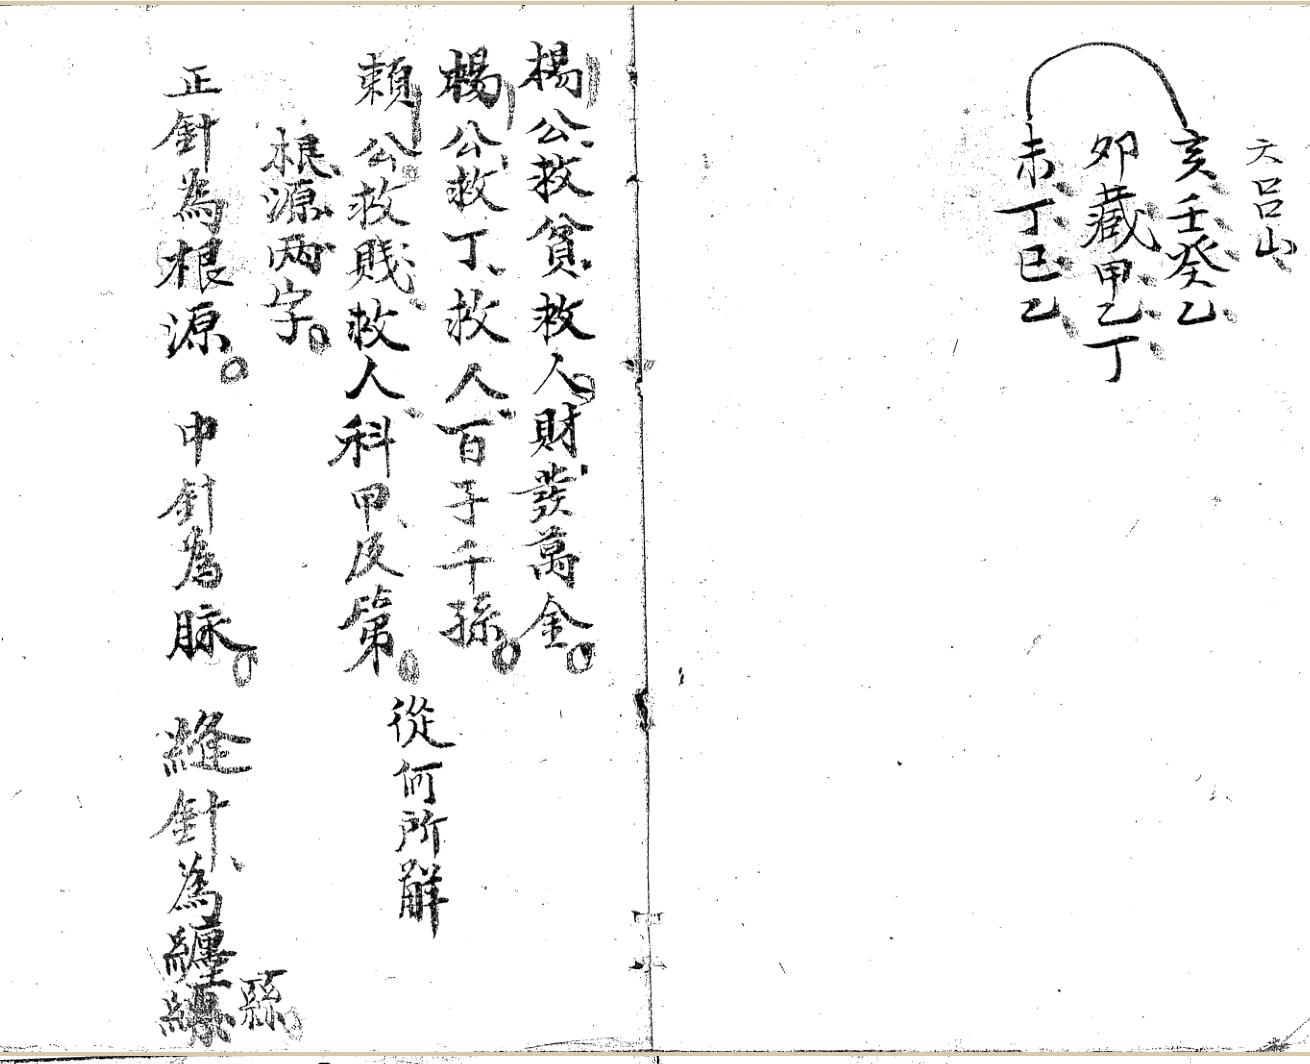 大呂山
亥壬癸乙
卯藏甲乙丁
未丁巳乙
楊公救貧救人財發萬金。
楊公救丁救人百子千孫。
賴公救賤救人科甲及第。
從何所解
根源兩字。
正針為根源。中針為脉。縫針為纏
縣